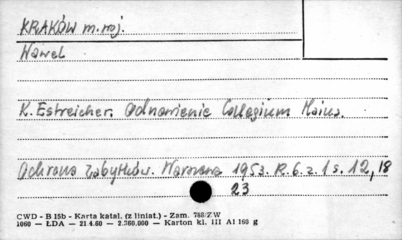 KRAKÓW m. woj.
Wawel
K. Estreicher. Odnowienie Collegium Maius.
Ochrona Zabytków. Warszawa 1953. R. 6. z. 1 s. 12, 18
23
CWD - B 15b - Karta katal. (z liniat.) - Zam. 788/ZW
1060 — ŁDA — 21.4.60 — 2.360.000 — Karton kl. III A1 160 g